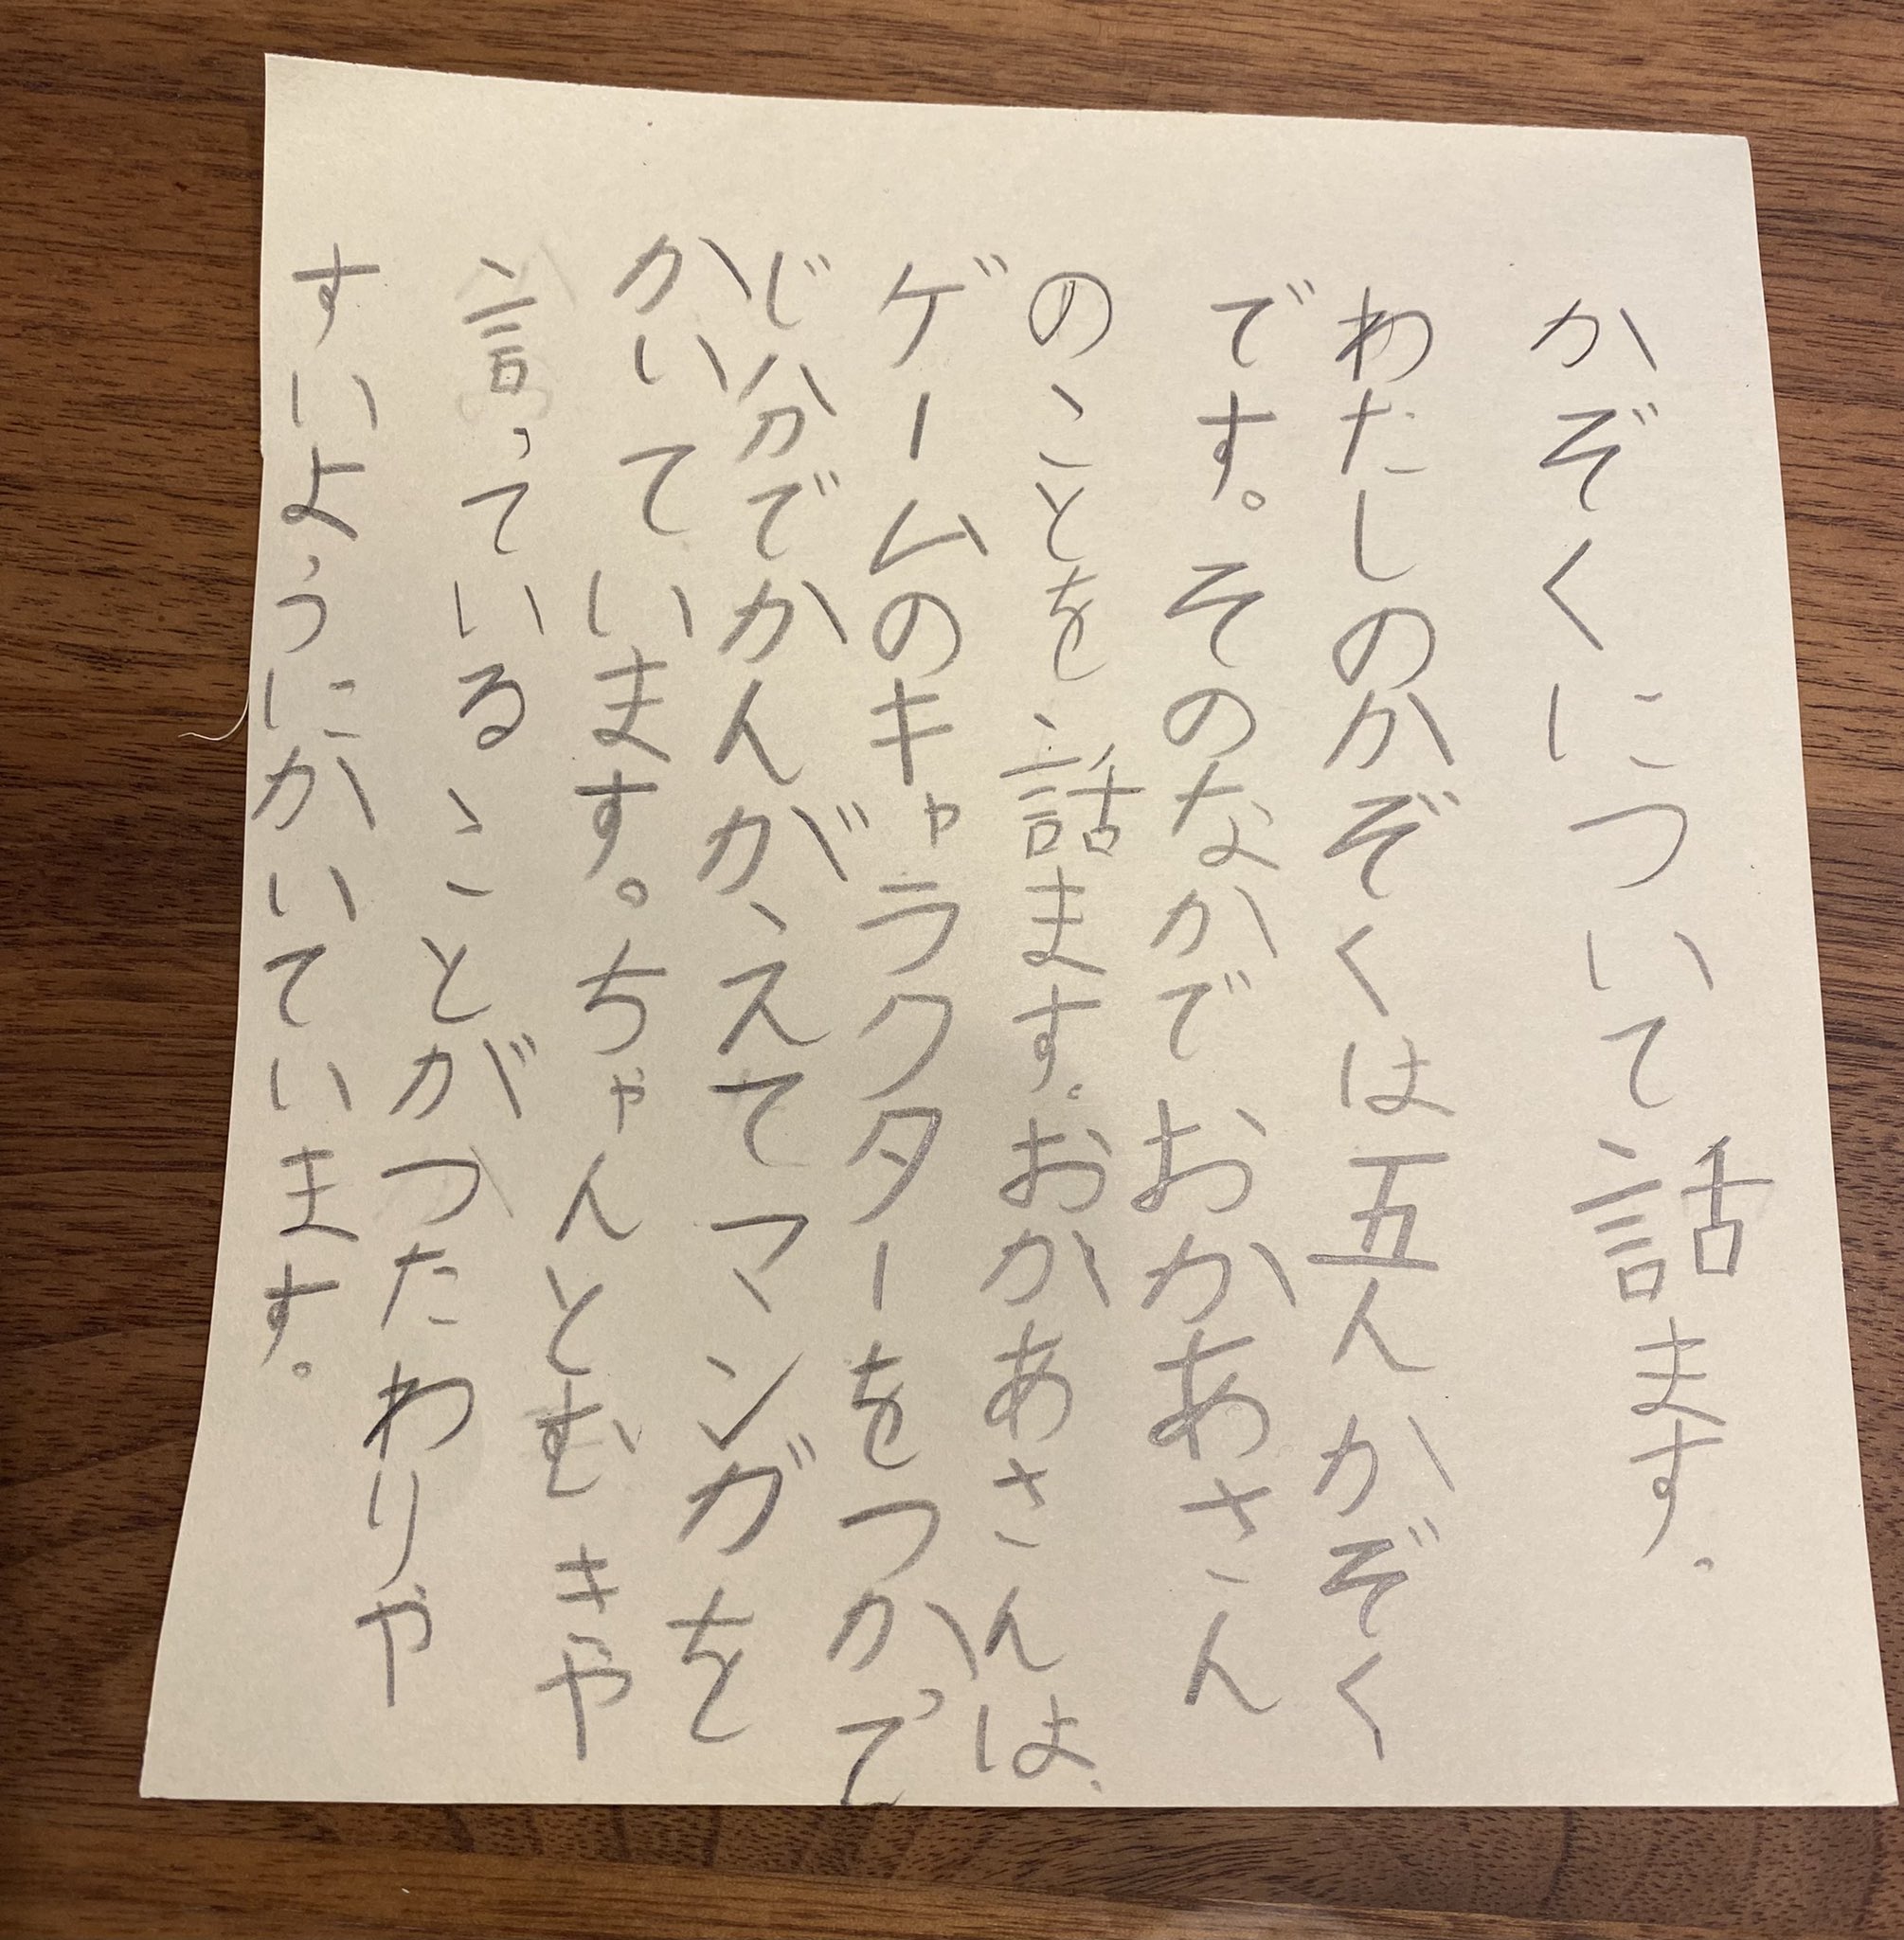 かぞくについて話ます。
わたしのかぞくは五人かぞく
です。そのなかでおかあさん
のことを話ます。おかあさんは、
ゲームのキャラクターをつかって
じ分でかんがえてマンガを
かいています。ちゃんとむきや
言っていることがつたわりや
すいようにかいています。